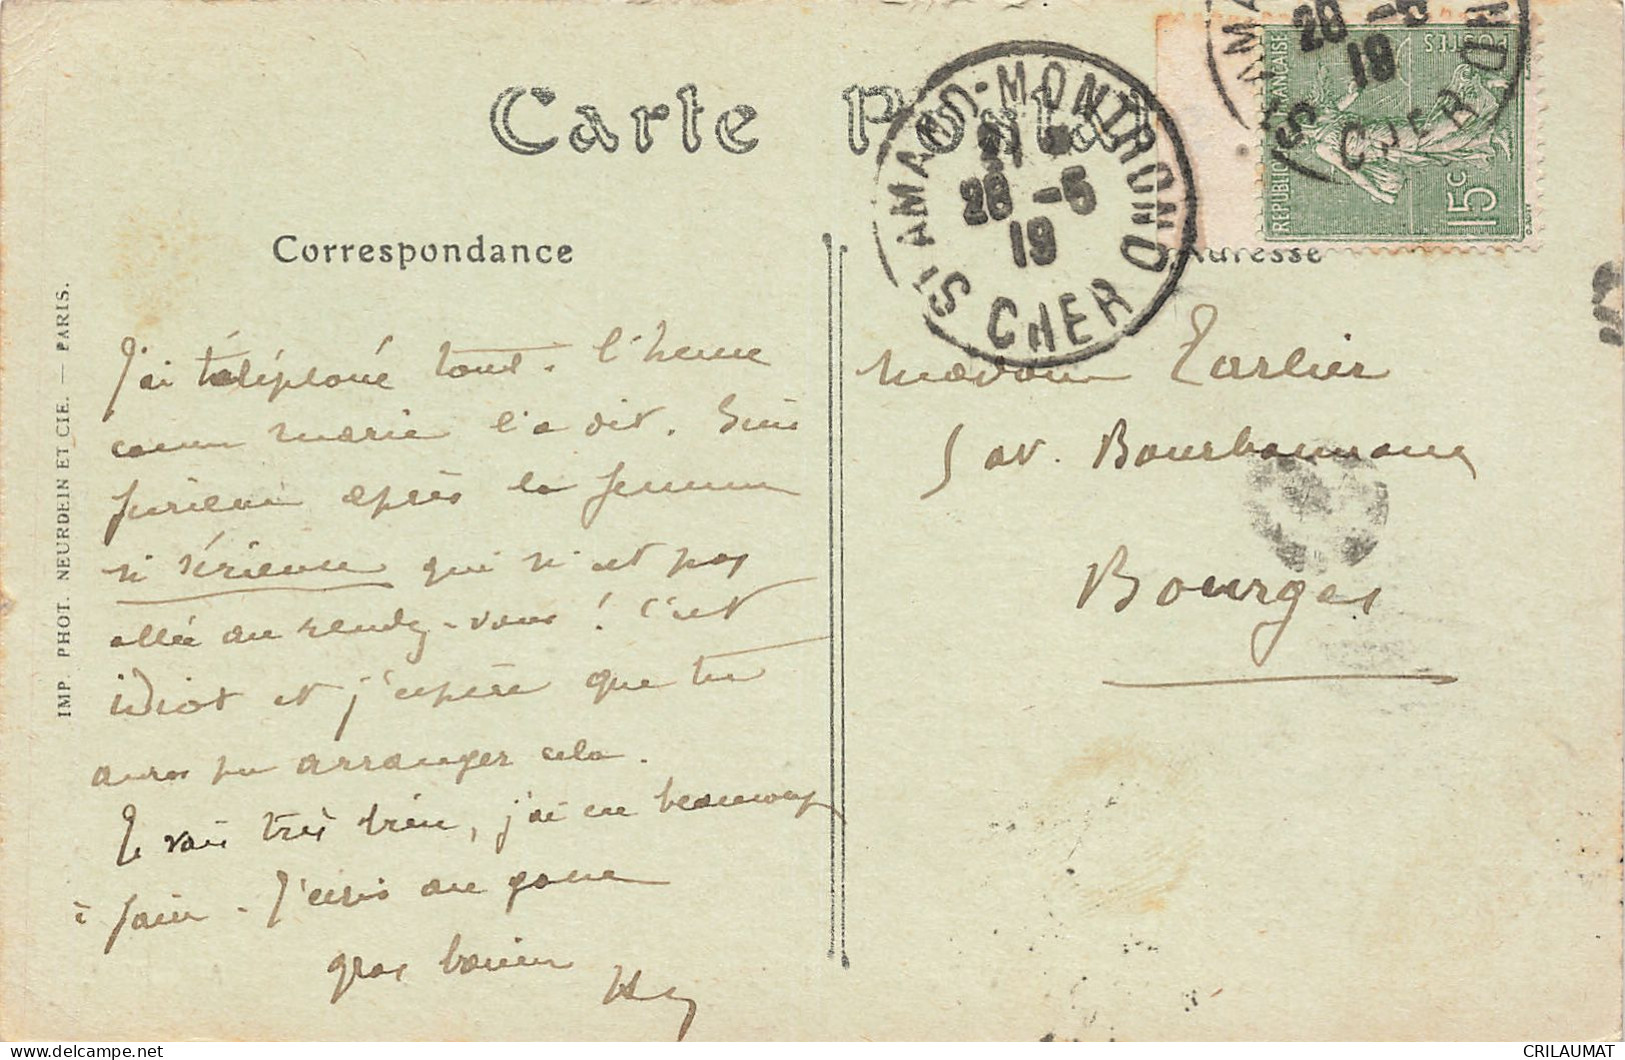 Carte Postal
Correspondance
Adresse
ST AMAND-MONTROND
28 -5
19
CHER
ST AMAND-MONTROND
28 -5
19
CHER
REPUBLIQUE FRANÇAISE
POSTES
15c
IMP. PHOT. NEURDEIN ET CIE. — PARIS.
J'ai téléphoné tout. l'heure
comme Marie l'a dit. Suis
furieux après la femme
si sérieuse qui n'est pas
allée au rendez-vous ! C'est
idiot et j'espère que tu
auras pu arranger cela.
Je vais très bien, j'ai eu beaucoup
à faire. J'écris au
gros baiser
Madame Tarlier
5 av. Bourbonnoux
Bourges
CRILAUMAT